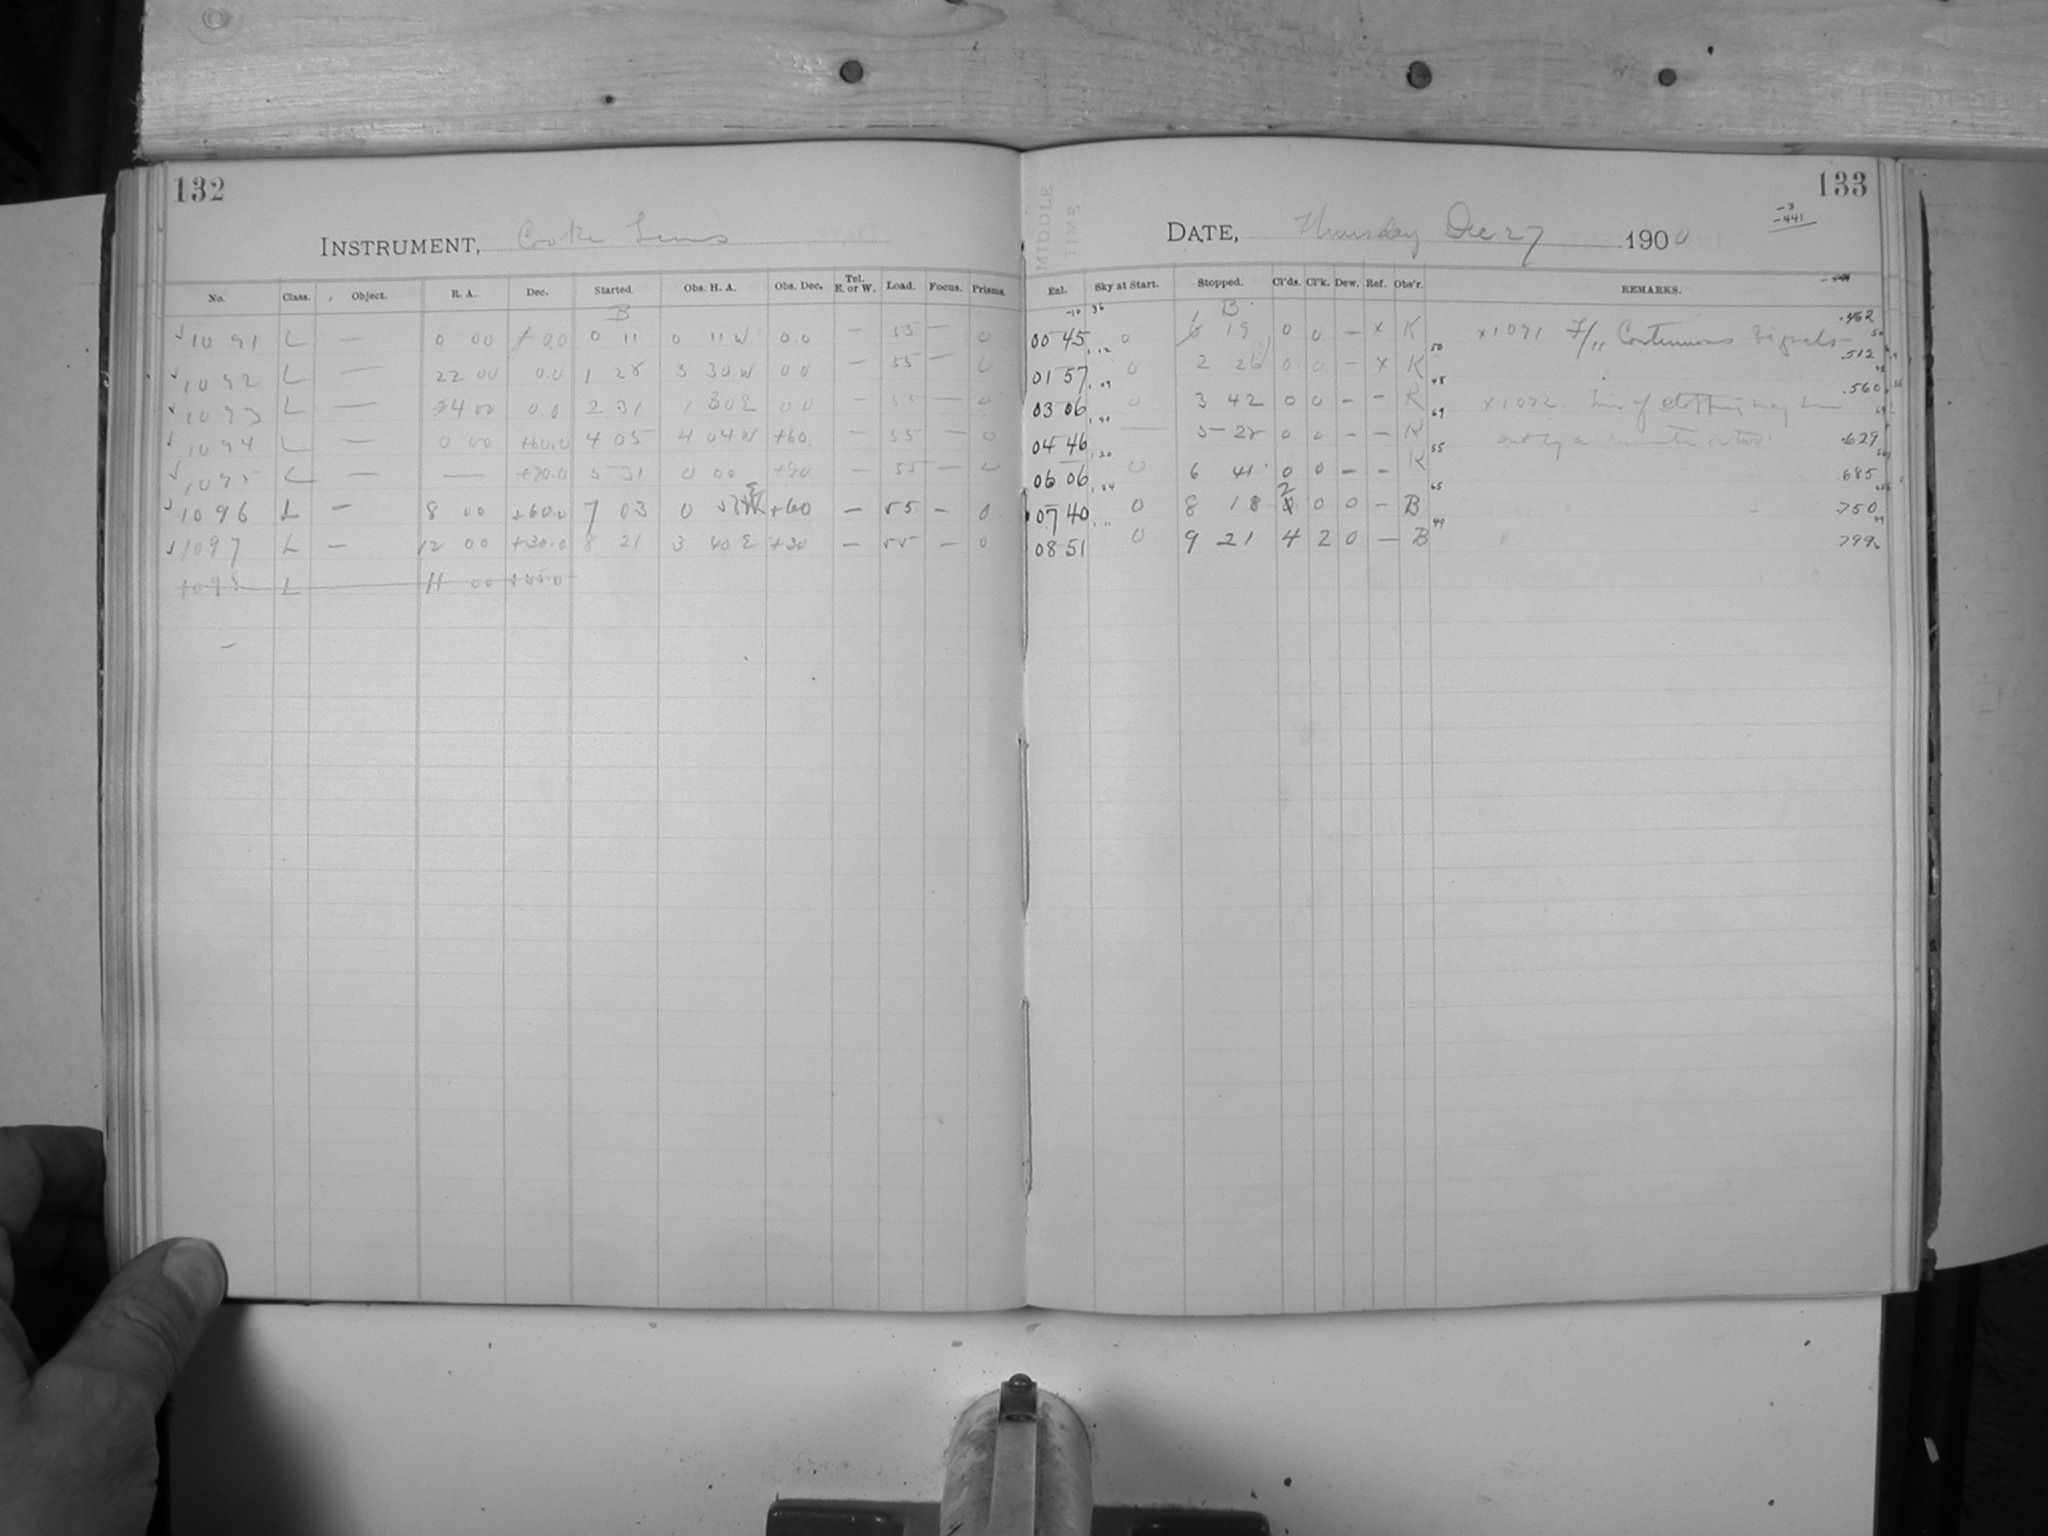 132
INSTRUMENT, Cooke Lens
No. Class. Object. R. A. Dec. Started. Obs. H. A. Obs. Dec. Tel. E. or W. Load. Focus. Prisms.
B
√1091 L — 0 00 0.0 0 11 0 11 W 0.0 — 55 — 0
√1092 L — 22 00 0.0 1 28 3 30 W 0 0 — 55 — 0
√1093 L — 00 0 0 2 31 1 30 E 0 0 — 55 — 0
√1094 L — 0 00 +60.0 4 05 4 04 W +60. — 55 — 0
√1095 L — — +90.0 5 31 0 00 +90 — 55 — 0
√1096 L — 8 00 +60.0 7 03 0 E +60 — 55 — 0
√1097 L — 12 00 +30.0 8 21 3 40 E +30 — 55 — 0
1098 L 11 00
133
MIDDLE TIME
DATE, Thursday Dec 27 1900
-3
-441
Enl. Sky at Start. Stopped. Cl'ds. Cl'k. Dew. Ref. Obs'r. REMARKS.
-10 36 B. .462
00 45 0 1 19 0 0 — x K x1091 F/11 Continuous Signals 50
01 57 0 2 26 0 0 — x K 50 .512
03 06 0 3 42 0 0 — — K 48 x1092. of stopping .560
04 46 — 5 28 0 0 — — K 69 out by a minute or two. .629
06 06 0 6 41 0 0 — — K 55 .685
07 40 0 8 18 2 0 0 — B 65 .750
08 51 0 9 21 4 2 0 — B 49 .799